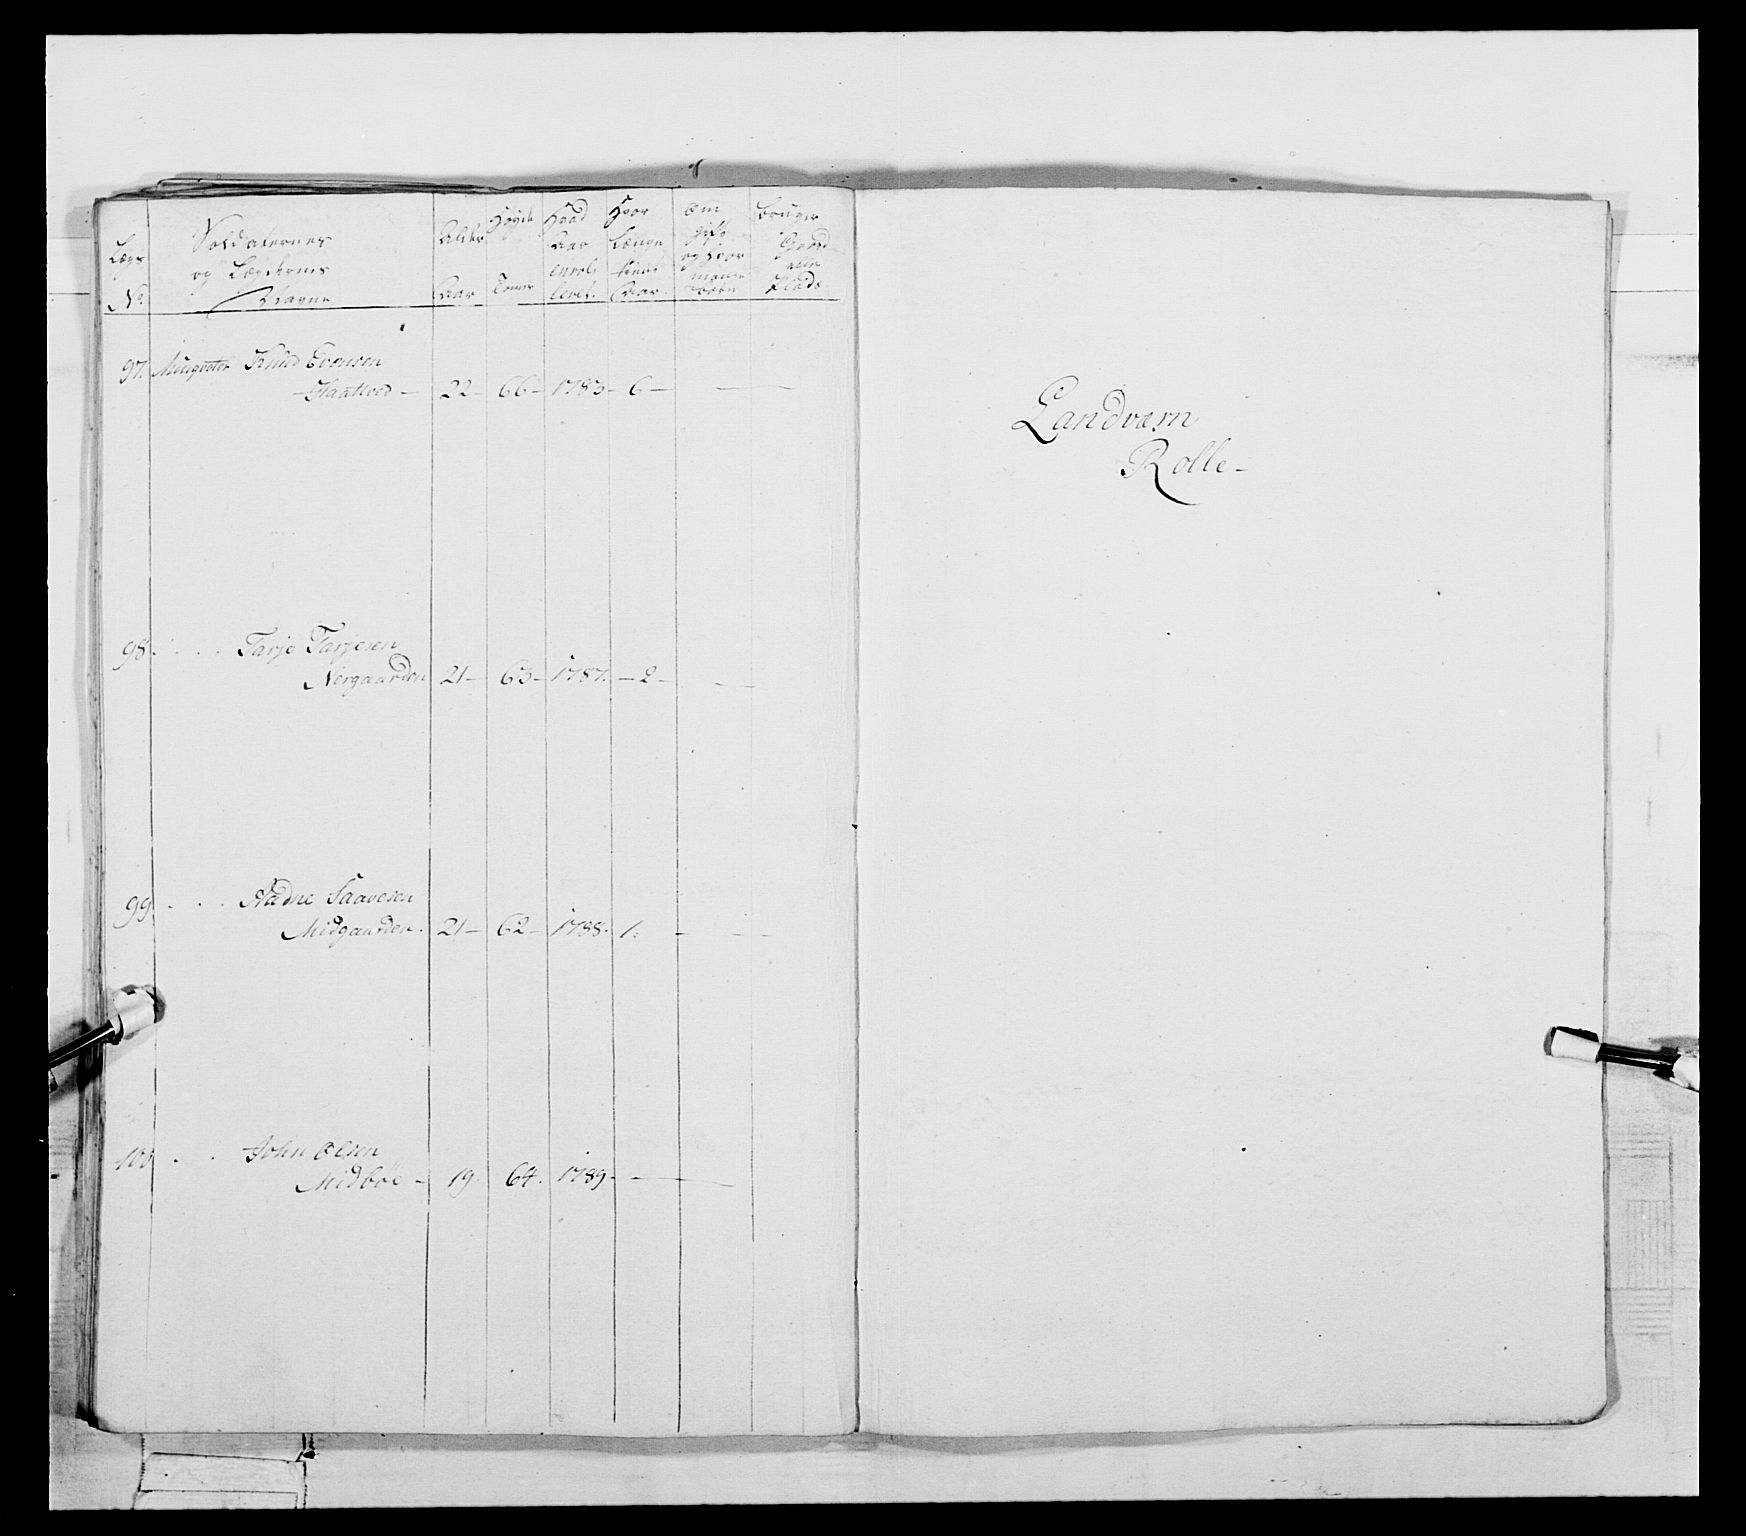 Lægs No.
Soldaternes og Lægdernes Navne
Alder Aar
Høyde Tomer
Hvad Aar enrolleret.
Hvor længe tient Aar
om gift og hvor mange Børn
bruger Gaard eller Plads
97. Musqveter Knud Evensen
Haatved — 22 — 66 — 1783 — 6 —
98. . . . Tarje Tarjesen
Nergaarden 21 — 63 — 1787. — 2 —
99. . . . Aadne Saavesen
Midgaarden. 21 — 62 — 1788. 1.
100 . . John Olsen
Midböe — 19. 64. 1789. —
Landværn
Rolle —